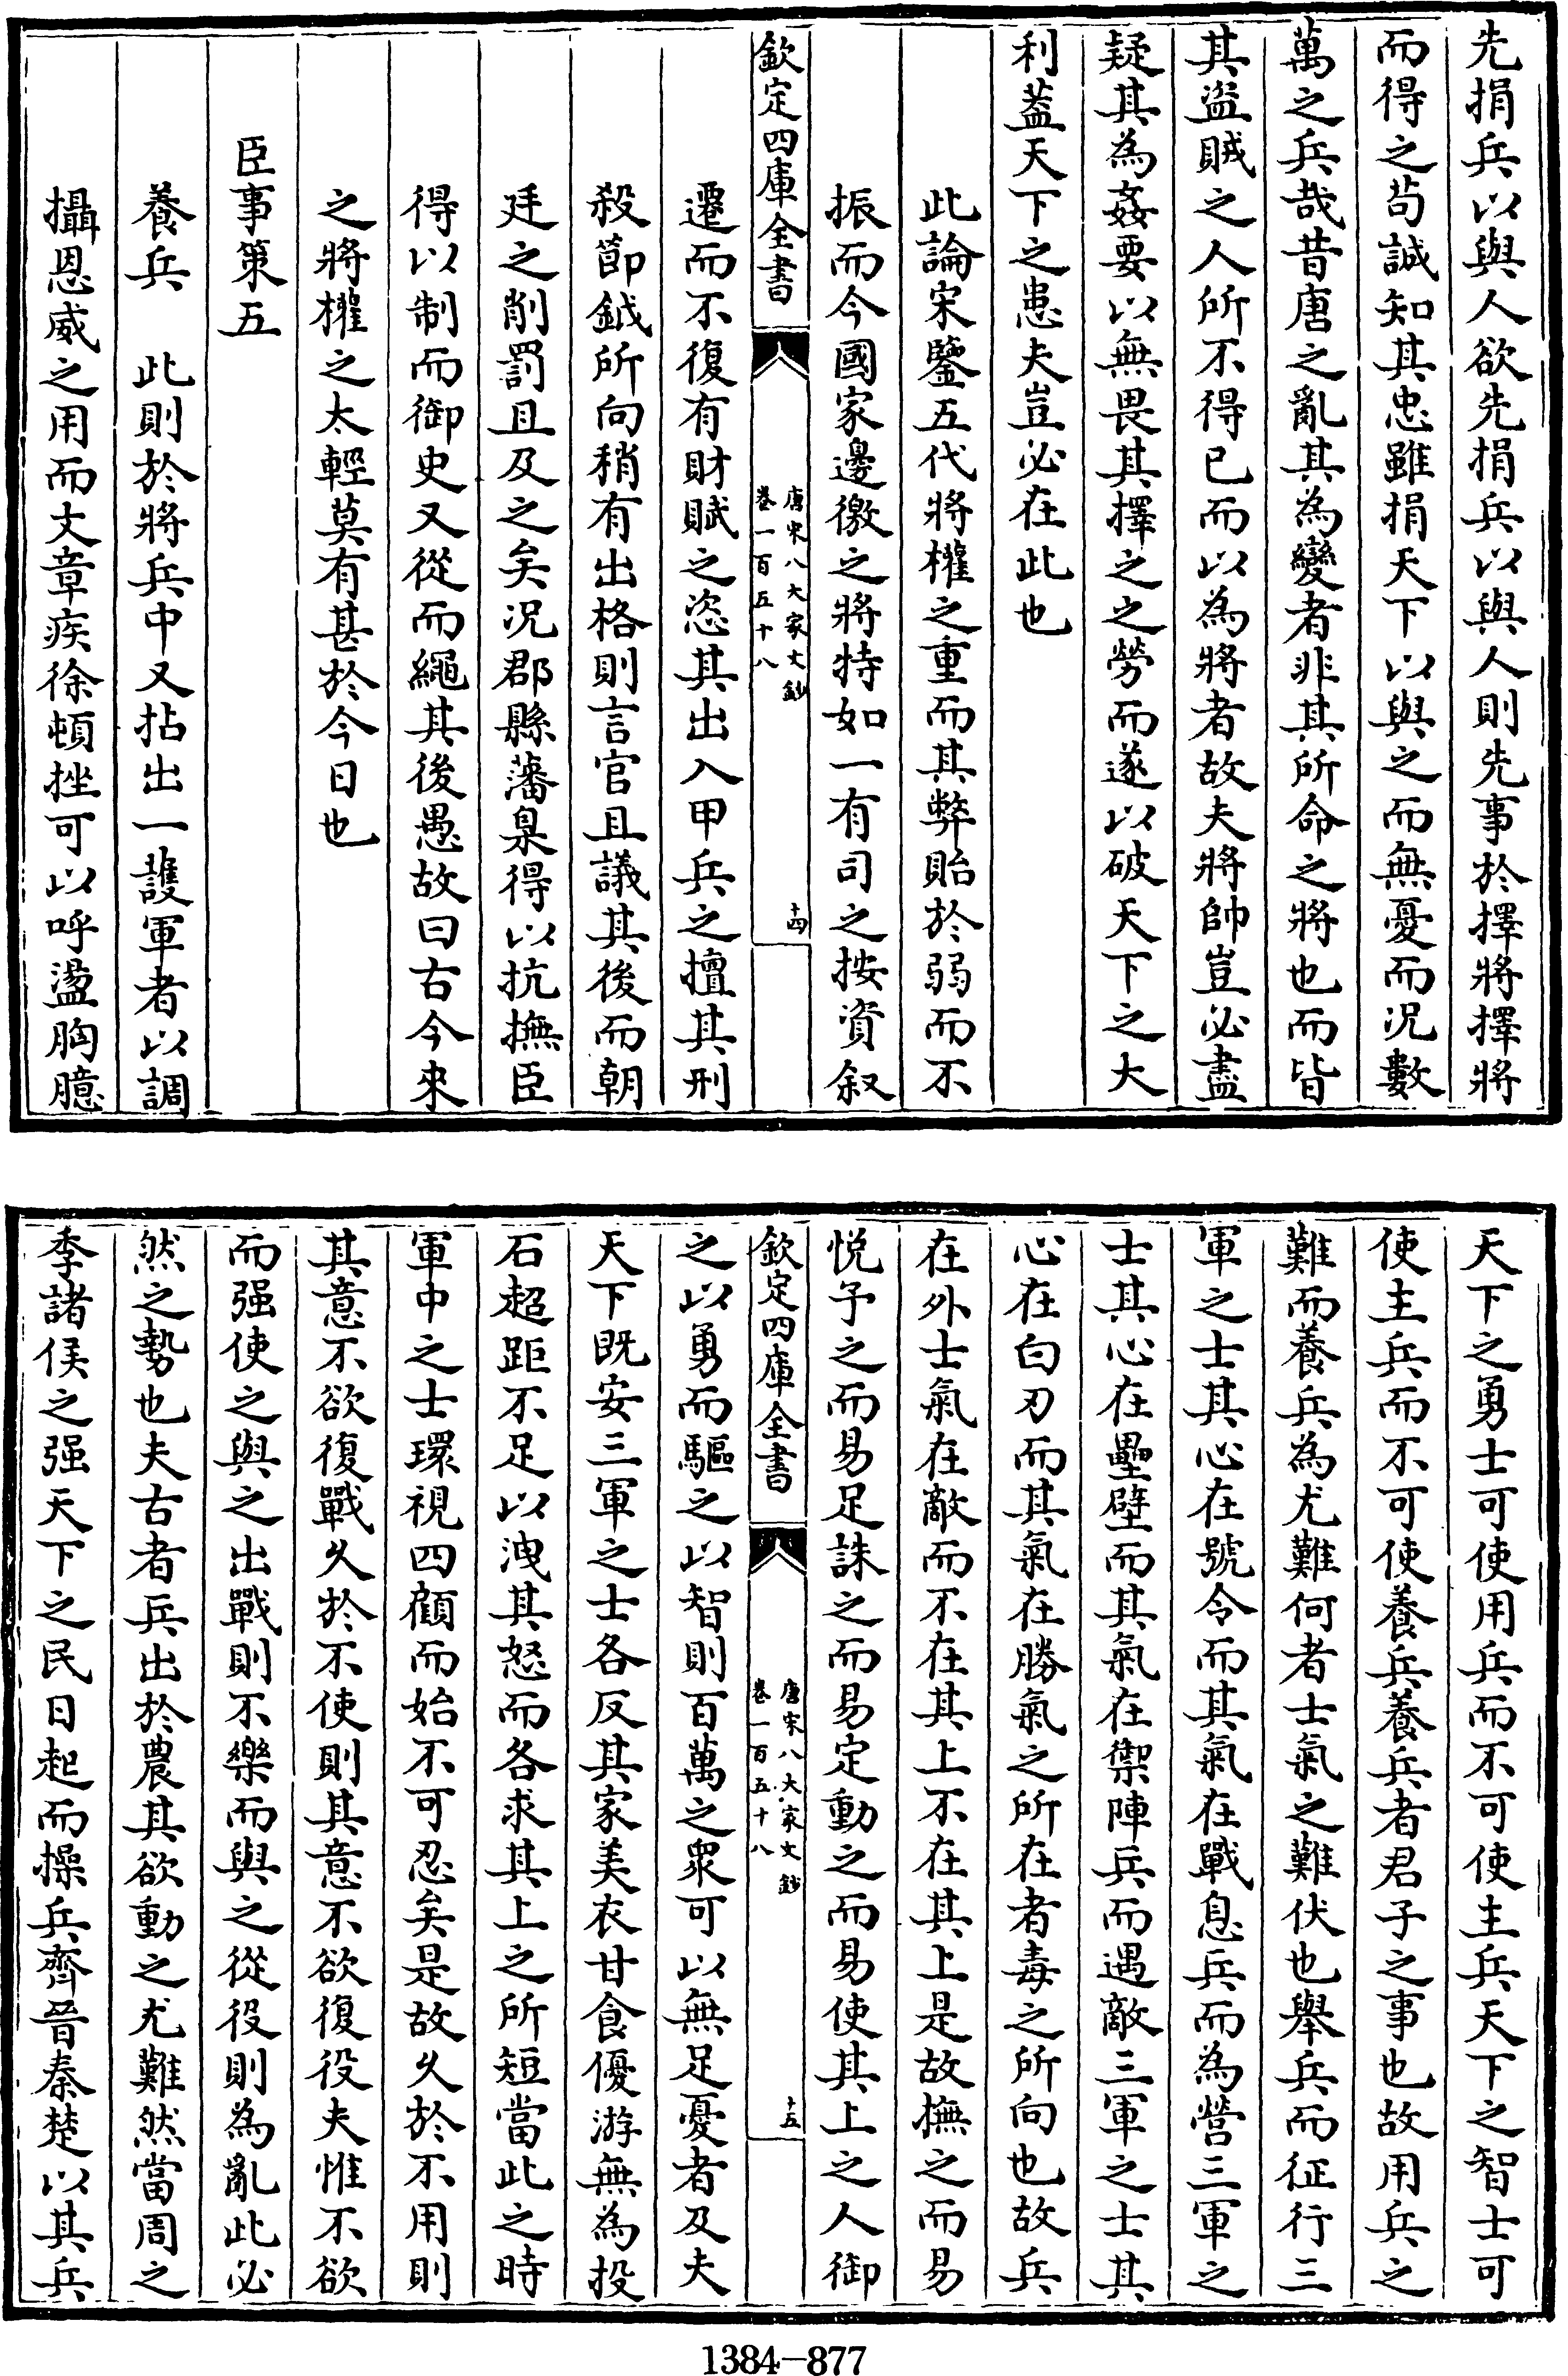 先捐兵以與人欲先捐兵以與人則先事於擇將擇將
而得之苟誠知其忠雖捐天下以與之而無憂而况數
萬之兵哉昔唐之亂其為變者非其所命之將也而皆
其盜賊之人所不得已而以為將者故夫將帥豈必盡
疑其為姦要以無畏其擇之之勞而遂以破天下之大
利葢天下之患夫豈必在此也
此論宋鑒五代將權之重而其弊貽於弱而不
振而今國家邊徼之將特如一有司之按資叙
欽定四庫全書
唐宋八大家文鈔
卷一百五十八
十四
遷而不復有財賦之恣其出入甲兵之擅其刑
殺節鉞所向稍有出格則言官且議其後而朝
廷之削罰且及之矣况郡縣藩臬得以抗撫臣
得以制而御史又從而繩其後愚故曰古今來
之將權之太輕莫有甚於今日也
臣事策五
養兵　此則於將兵中又拈出一護軍者以調
攝恩威之用而文章疾徐頓挫可以呼盪胸臆
天下之勇士可使用兵而不可使主兵天下之智士可
使主兵而不可使養兵養兵者君子之事也故用兵之
難而養兵為尤難何者士氣之難伏也舉兵而征行三
軍之士其心在號令而其氣在戰息兵而為營三軍之
士其心在壘壁而其氣在禦陣兵而遇敵三軍之士其
心在白刃而其氣在勝氣之所在者毒之所向也故兵
在外士氣在敵而不在其上不在其上是故撫之而易
悅予之而易足誅之而易定動之而易使其上之人御
欽定四庫全書
唐宋八大家文鈔
卷一百五十八
十五
之以勇而驅之以智則百萬之衆可以無足憂者及夫
天下既安三軍之士各反其家美衣甘食優游無為投
石超距不足以洩其怒而各求其上之所短當此之時
軍中之士環視四顧而始不可忍矣是故久於不用則
其意不欲復戰久於不使則其意不欲復役夫惟不欲
而强使之與之出戰則不樂而與之從役則為亂此必
然之勢也夫古者兵出於農其欲動之尤難然當周之
季諸侯之强天下之民日起而操兵齊晉秦楚以其兵
1384-877